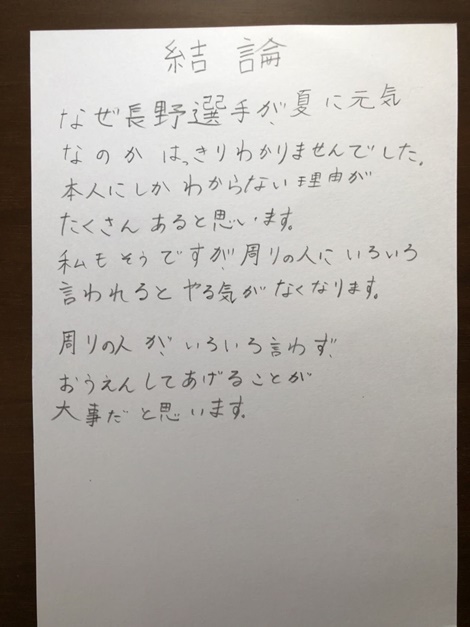 結論
なぜ長野選手が、夏に元気
なのかはっきりわかりませんでした。
本人にしかわからない理由が
たくさんあると思います。
私もそうですが、周りの人にいろいろ
言われるとやる気がなくなります。
周りの人が、いろいろ言わず、
おうえんしてあげることが
大事だと思います。